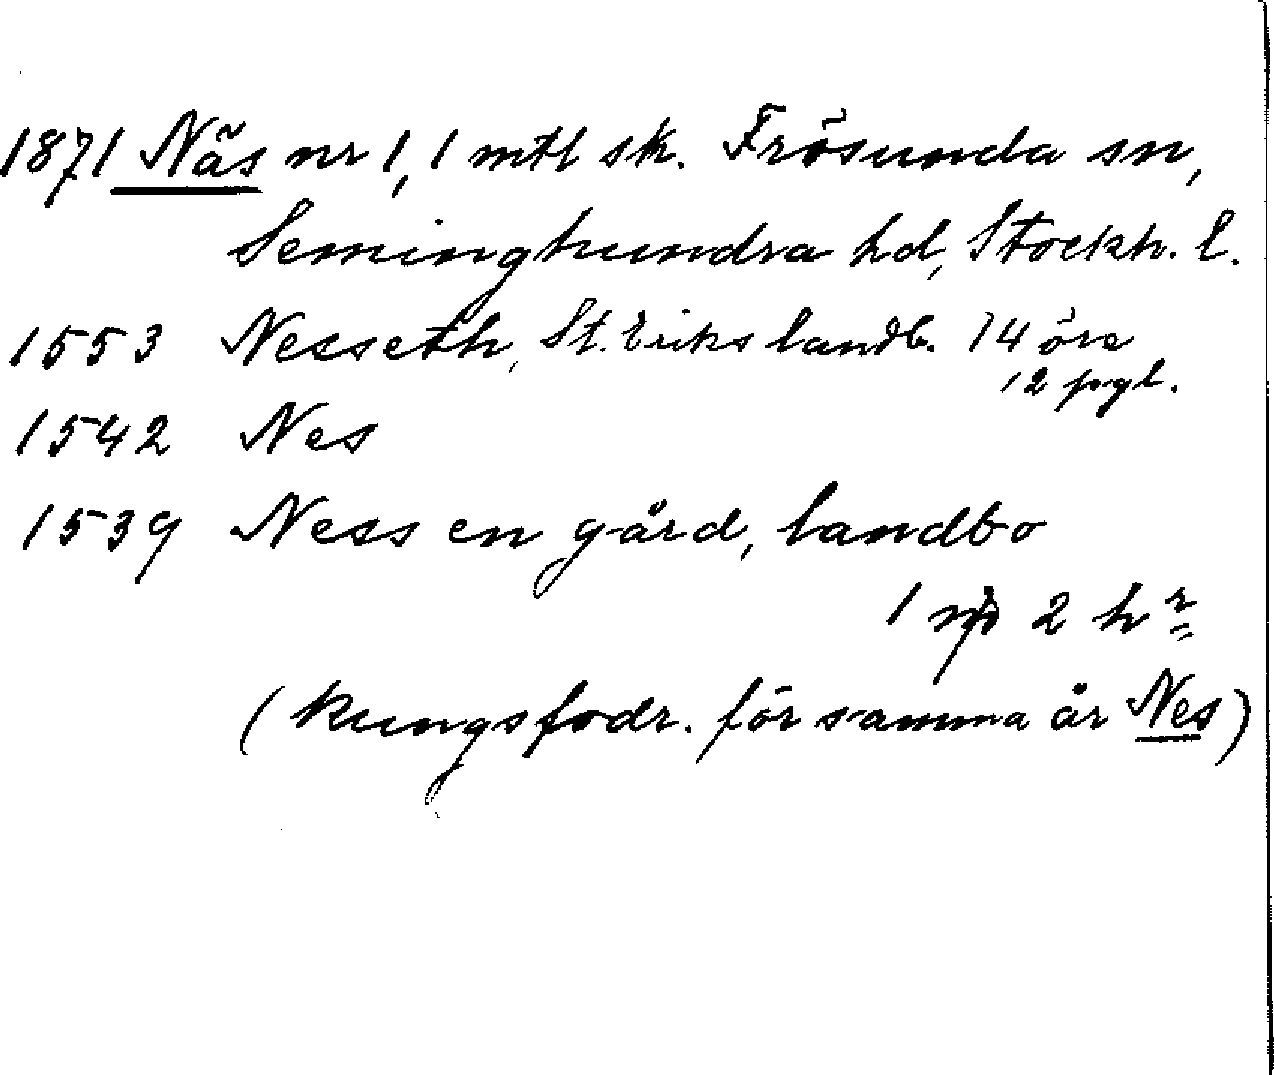 1871 Näs nr 1, 1 mtl sk. Frösunda sn,
Seminghundra hd, Stockh. l.
1553 Nesseth, St. Eriks landb. 14 öre
12 pgl.
1542 Nes
1539 Ness en gård, landbo
1 mk 2 hr
(Kungsfodr. för samma år Nes)